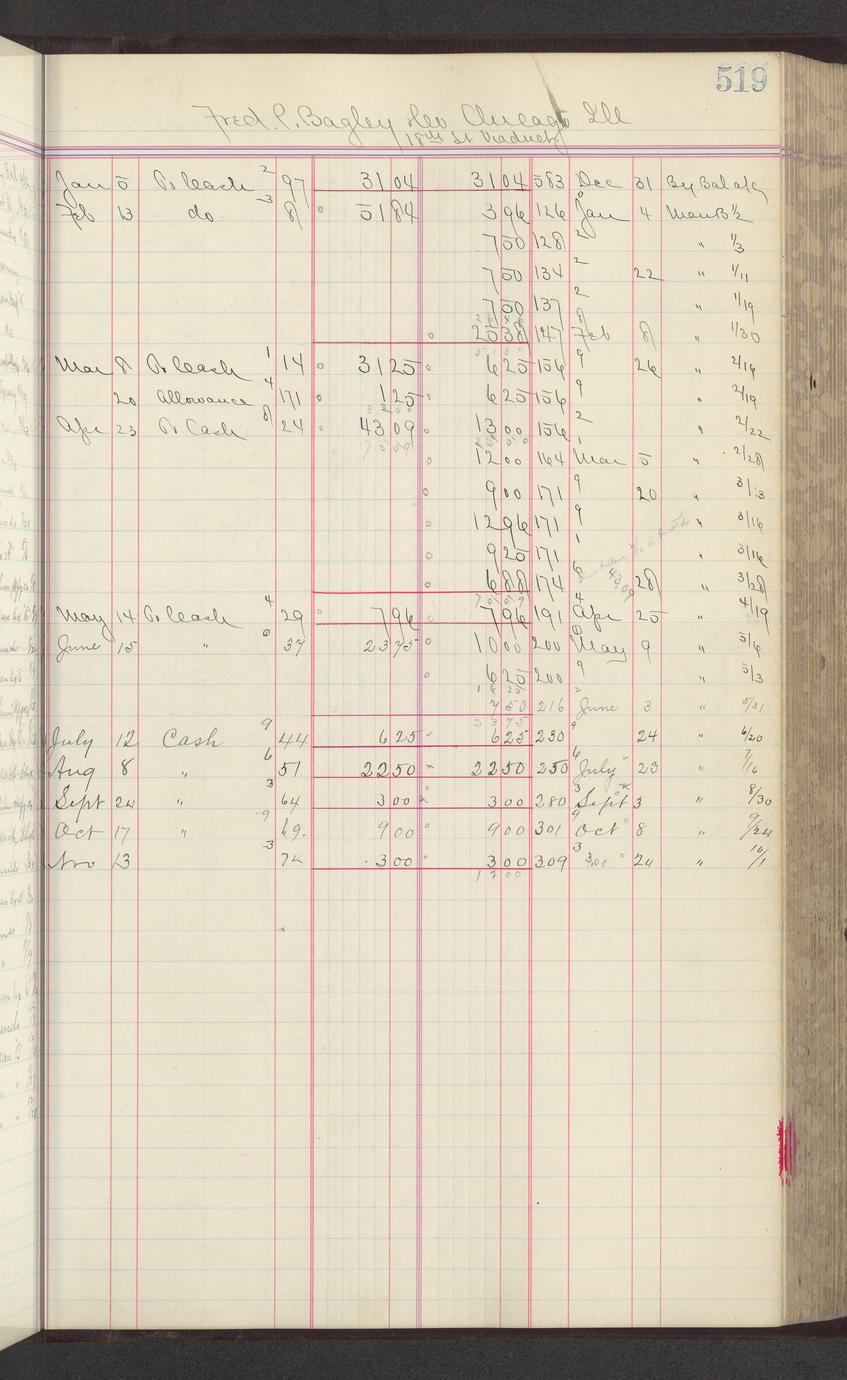 519
Fred. P. Bagley Chicago Ill
18th St Viaduct
Jan 5 To Cash 2 97 31 04 31 04 583 Dec 31 By Bal
Feb 13 do 3 8 51 84 3 96 126 0 Jan 4 1/2
7 50 128 2 " 1/3
7 50 134 2 22 " 1/11
7 50 137 2 " 1/19
25 38 147 8 Feb 8 " 1/30
Mar 8 To Cash 1 14 31 25 6 25 156 9 26 " 2/16
20 Allowance 4 171 1 25 6 25 156 9 " 2/19
Apr 23 To Cash 8 24 43 09 13 00 156 2 " 2/22
12 00 164 1 Mar 5 " 2/28
9 00 171 9 20 " 3/13
12 96 171 9 " 3/16
9 25 171 1 " 3/16
6 88 174 6 43.09 28 " 3/28
70 09
May 14 To Cash 4 29 7 96 7 96 191 4 Apr 25 " 4/19
June 15 " 0 37 23 75 10 00 200 0 May 9 " 5/6
6 25 200 9 " 5/3
7 50 216 2 June 3 " 5/31
23 75
July 12 Cash 9 44 6 25 6 25 230 9 24 " 6/20
Aug 8 " 6 51 22 50 22 50 250 6 July 23 " 7/16
Sept 24 " 3 64 3 00 3 00 280 3 Sept 3 " 8/30
Oct 17 " 9 69. 9 00 9 00 301 9 Oct 8 " 9/24
Nov 13 3 74 3 00 3 00 309 3 3,00 24 " 10/1
12 00